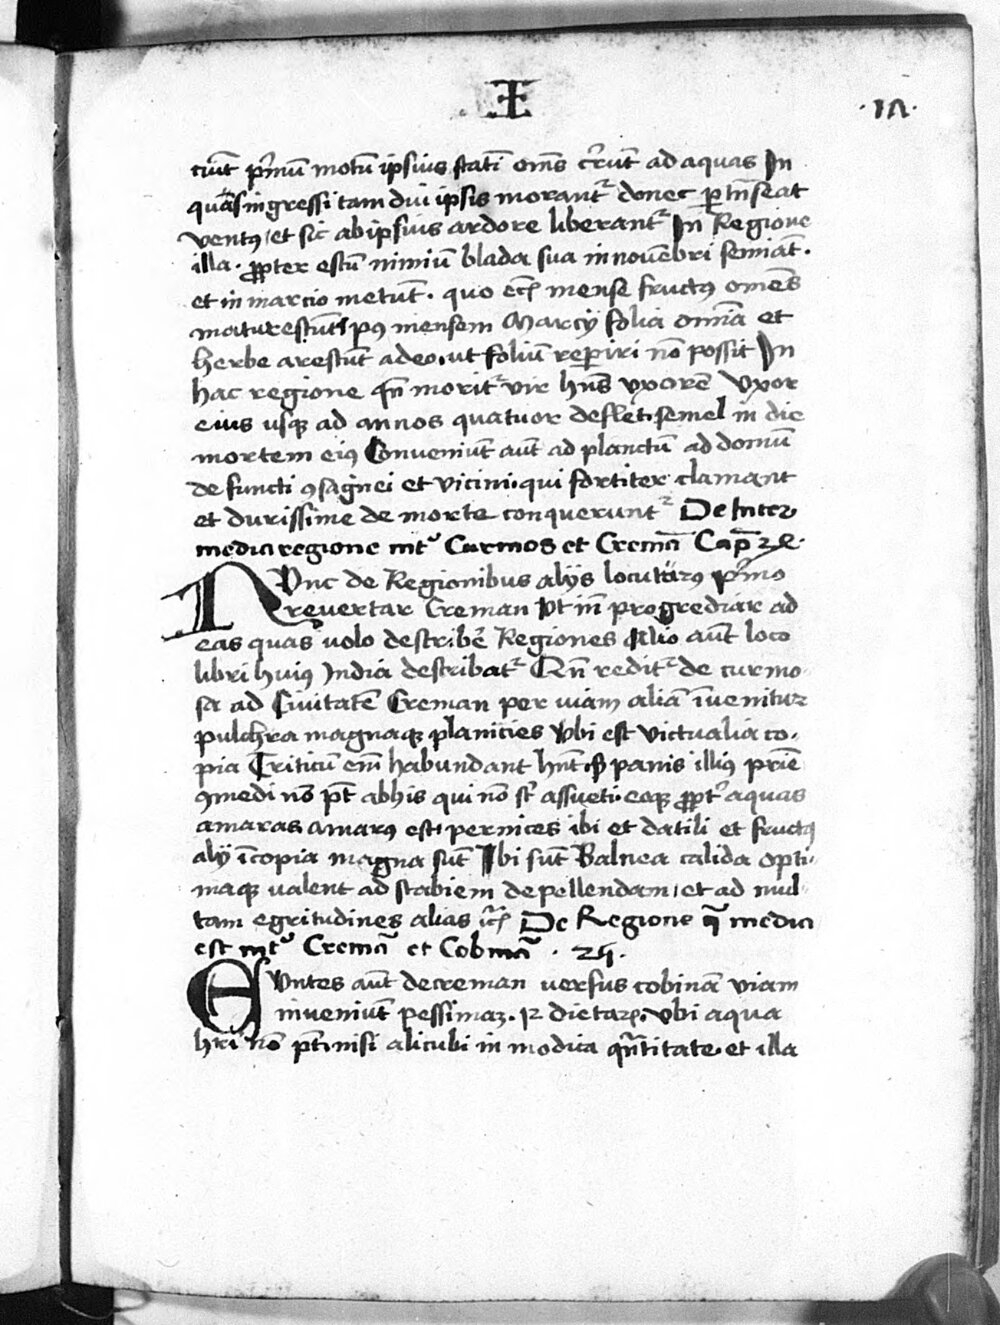 ·I·
·17·
ciūt pͥmū motū ipsius statī om̄s cūrūt ad aquas In
quas ingressi tam diu ipsis morant᷑ donec ꝑtn̄seat
ventꝰ et sic ab ipsius ardore liberant᷑ In Regione
illa · ꝓpter estū nimiū blada sua in nouēbri semiāt ·
et in marcio metūt · quo eciꝫ mense fructꝰ omēs
maturescūt pꝰ mensem Marcÿ folia omīa et
herbe arescūt adeo ut foliū reperiri nō possit In
hac regione qn̄ morit᷑ vir hn̄s vxorē Vxor
eius usqꝫ ad annos quatuor deflet semel in die
mortem eiꝰ Conueniūt aūt ad planctū ad domū
defuncti ꝯsagnei et vicini qui fortiter clamant
et durissime de morte conquerunt᷑ De Inter
media regione int᷑ Curmos et Cremā Cap̄ 24 ·
NVnc de Regionibus alijs locuturꝰ pͥmo
reuertar Creman Vt in progrediar ad
eas quas uolo describē Regiones Alio aūt loco
libri huiꝰ India describat᷑ Qn̄ redit᷑ de curmo
sa ad Ciuitatē Creman per uiam aliā īuenitur
pulchra magnaqꝫ planicies Vbi est victualiū co
pia Triticū em̄ habundant hn̄t sꝫ panis illiꝰ priē
ꝯmedi nō pt̄ ab his qui nō st̄ assueti eoqꝫ ꝓpt᷑ aquas
amaras amarꝰ est pernices ibi et datili et fructꝰ
alÿ ī copia magna sūt Ibi sūt Balnea calida opti
maqꝫ ualent ad scabiem depellendam et ad mul
tam egritudines alias De Regione q̄ media
est int᷑ Cremā et Cobinā · 25 ·
EVntes aūt de creman uersus cobinā viam
inueniūt pessimaꝫ · 12 dietaꝝ Vbi aqua
hrī nō pt̄ nisi alicubi in modica qn̄titate et illa